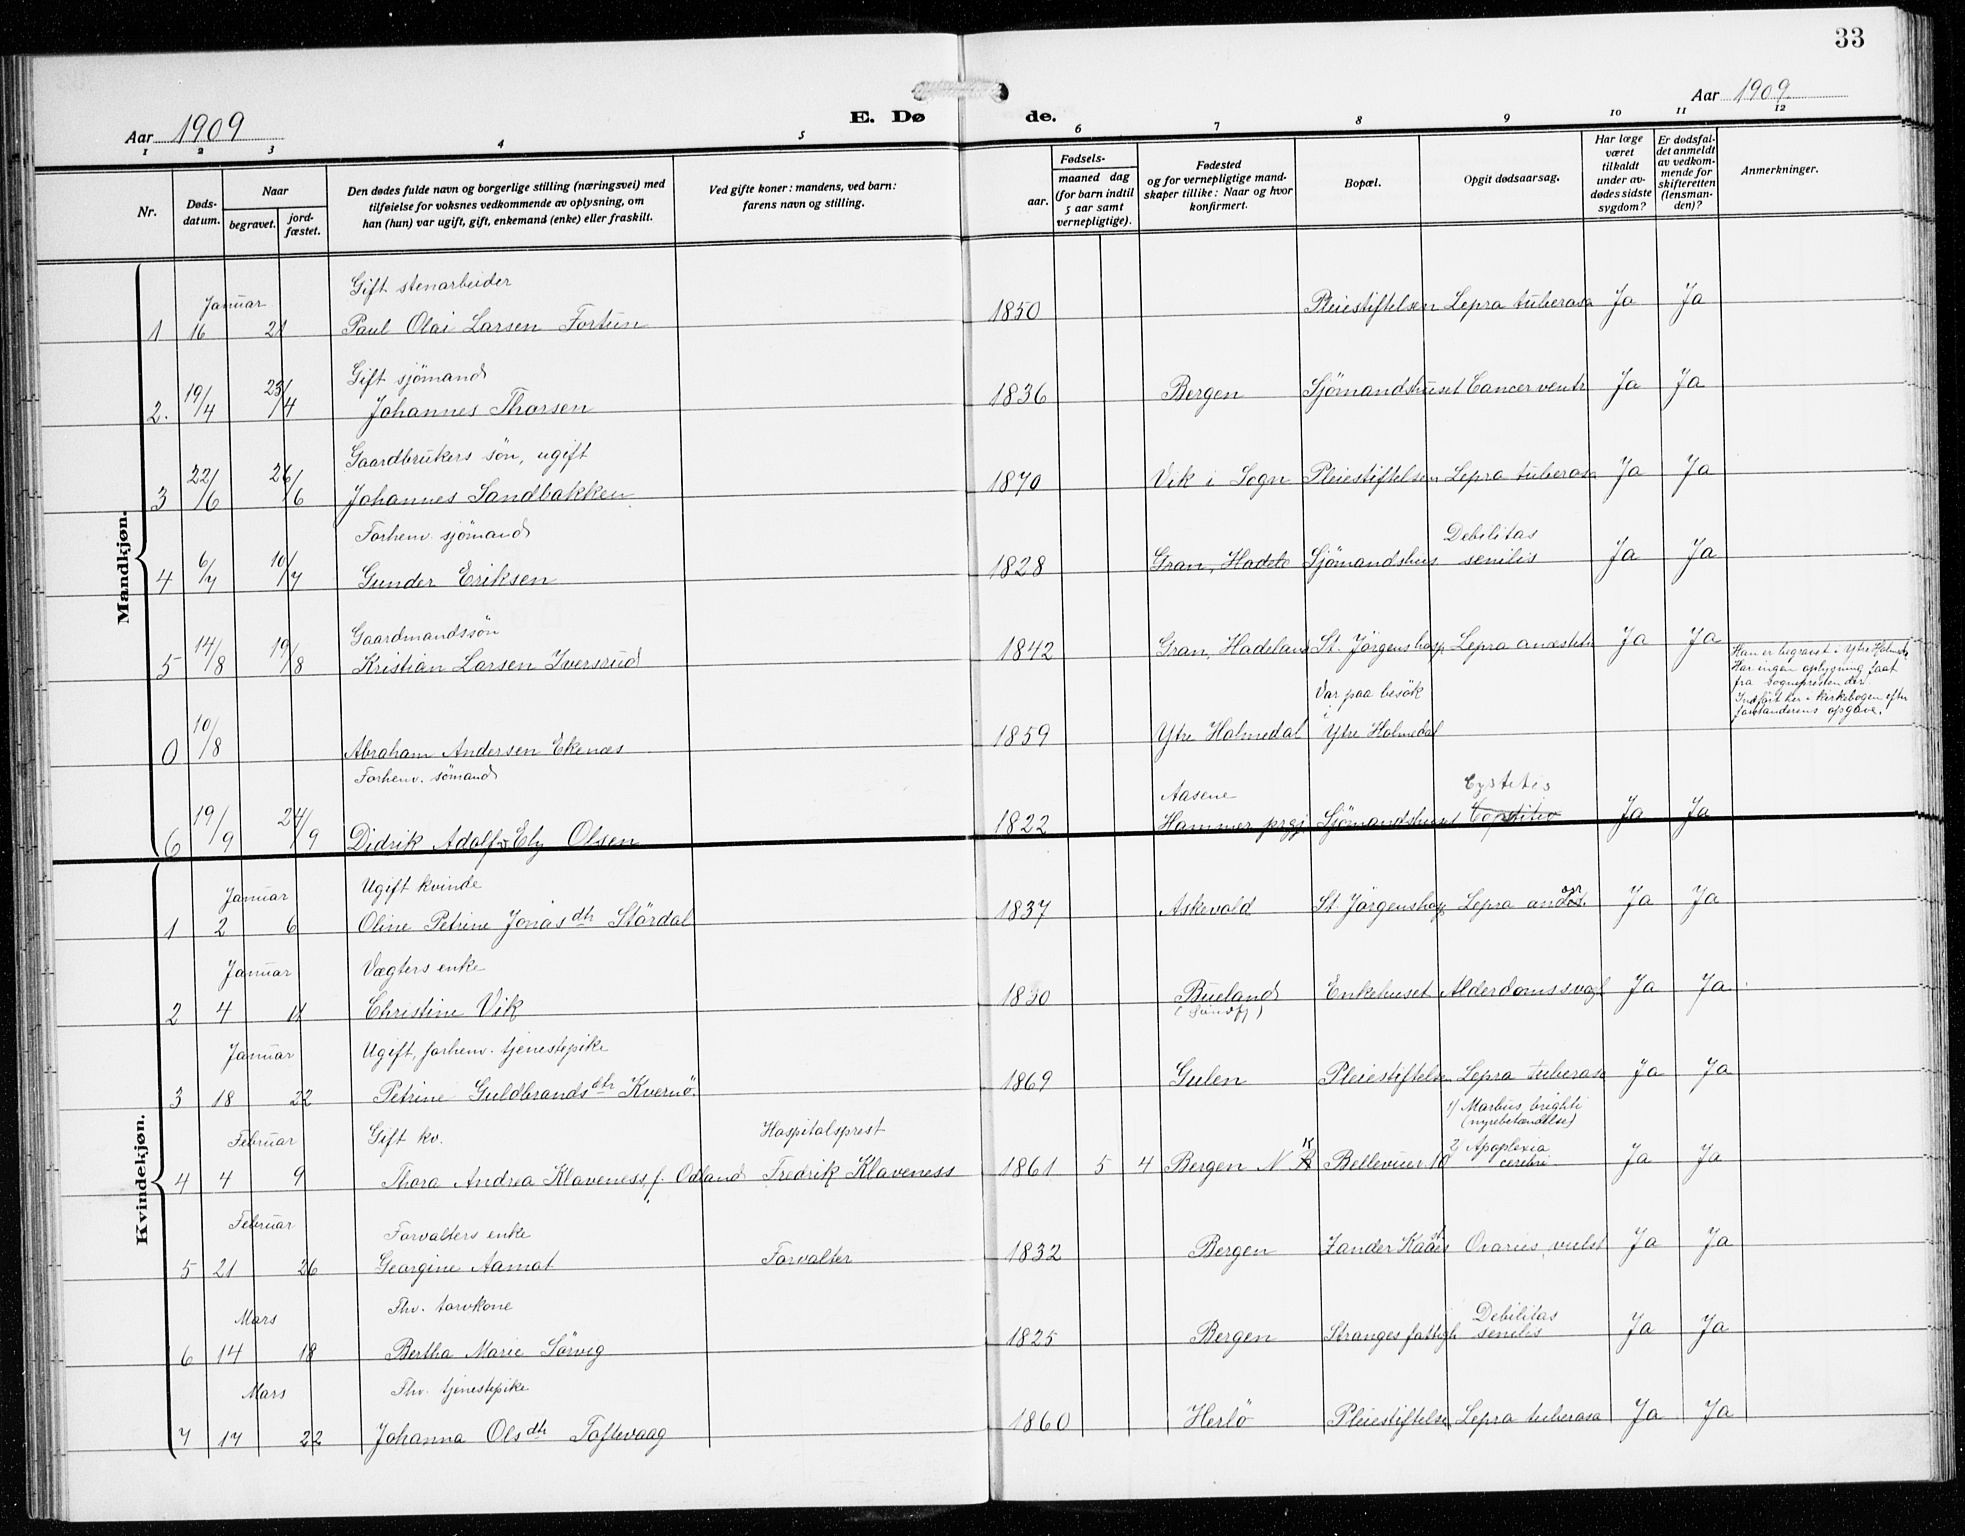 33
Aar 1909
E. Døde.
Aar 1909
1 2 3 4 5 6 7 8 9 10 11 12
Nr.
Døds-datum.
Naar
begravet.
jord-fæstet.
Den dødes fulde navn og borgerlige stilling (næringsvei) med
tilføielse for voksnes vedkommende av oplysning, om
han (hun) var ugift, gift, enkemand (enke) eller fraskilt.
Ved gifte koner: mandens, ved barn:
farens navn og stilling.
Fødsels-
aar.
maaned dag
(for barn indtil
5 aar samt
vernepligtige).
Fødested
og for vernepligtige mand-
skaper tillike: Naar og hvor
konfirmert.
Bopæl.
Opgit dødsaarsag.
Har læge
været
tilkaldt
under av-
dødes sidste
sygdom?
Er dødsfal-
det anmeldt
av vedkom-
mende for
skifteretten
(lensman-
den)?
Anmerkninger.
Mandkjøn.
Januar Gift stenarbeider
1 16 21 Paul Olai Larsen Fortun 1850 Pleiestiftelsen Lepra tuberosa Ja Ja
Gift sjömand
2. 19/4 23/4 Johannes Thorsen 1836 Bergen Sjömandshuset Cancer ventr Ja Ja
Gaardbrukers sön, ugift
3 22/6 26/6 Johannes Sandbakken 1870 Vik i Sogn Pleiestiftelsen Lepra tuberosa Ja Ja
Forhenv. sjömand Debilitas
4 6/7 10/7 Gunder Eriksen 1828 Gran, Hadel Sjömandshus senilis Ja Ja
Gaardmandssön
5 14/8 19/8 Kristian Larsen Iversrud 1842 Gran, Hadeland St. Jörgenshosp Lepra anæsteti Ja Ja
Var paa besök
0 10/8 Abraham Andersen Ekenæs 1859 Ytre Holmedal i Ytre Holmedal
Han er begravet i Ytre Holmed.
Har ingen oplysning faat
fra sognepresten der
Indfört her i kirkebogen efter
forstanderens opgave.
Forhenv. sömand Aasene Cystitis
6 19/9 24/9 Didrik Adolf Ely Olsen 1822 Hammer prgj Sjömandshuset Ja Ja
Kvindekjøn.
Januar Ugift kvinde
1 2 6 Oline Petrine Jonasdtr Stördal 1837 Askevold St. Jörgenshosp Lepra Ja Ja
Januar Vægters enke
2 4 11 Christine Vik 1830 Bueland Enkehuset Alderdomssvagh Ja Ja
(Söndfj)
Januar Ugift, forhenv. tjenestepike
3 18 22 Petrine Guldbrandsdtr Kvernö. 1869 Gulen Pleiestiftelsen Lepra tuberosa Ja Ja
Februar Gift kv. Hospitalsprest 1) Morbus brighti
(nyrebetændelse)
4 4 9 Thora Andrea Klaveness, f. Odland Fredrik Klaveness 1861 5 4 Bergen N K Belleviuer 10 2) Apoplexia
cerebri Ja Ja
Februar Forvalters enke
5 21 26 Georgine Aamot Forvalter 1832 Bergen Zander Kaaes Ovaries vulst Ja Ja
Mars Fhv. torvkone Debilitas
6 14 18 Bertha Marie Sörvig 1825 Bergen Stranges fattigh senilis Ja Ja
Mars Fhv. tjenestepike
7 17 22 Johanna Olsdtr Toftevaag 1860 Herlö Pleiestiftelse Lepra tuberosa Ja Ja